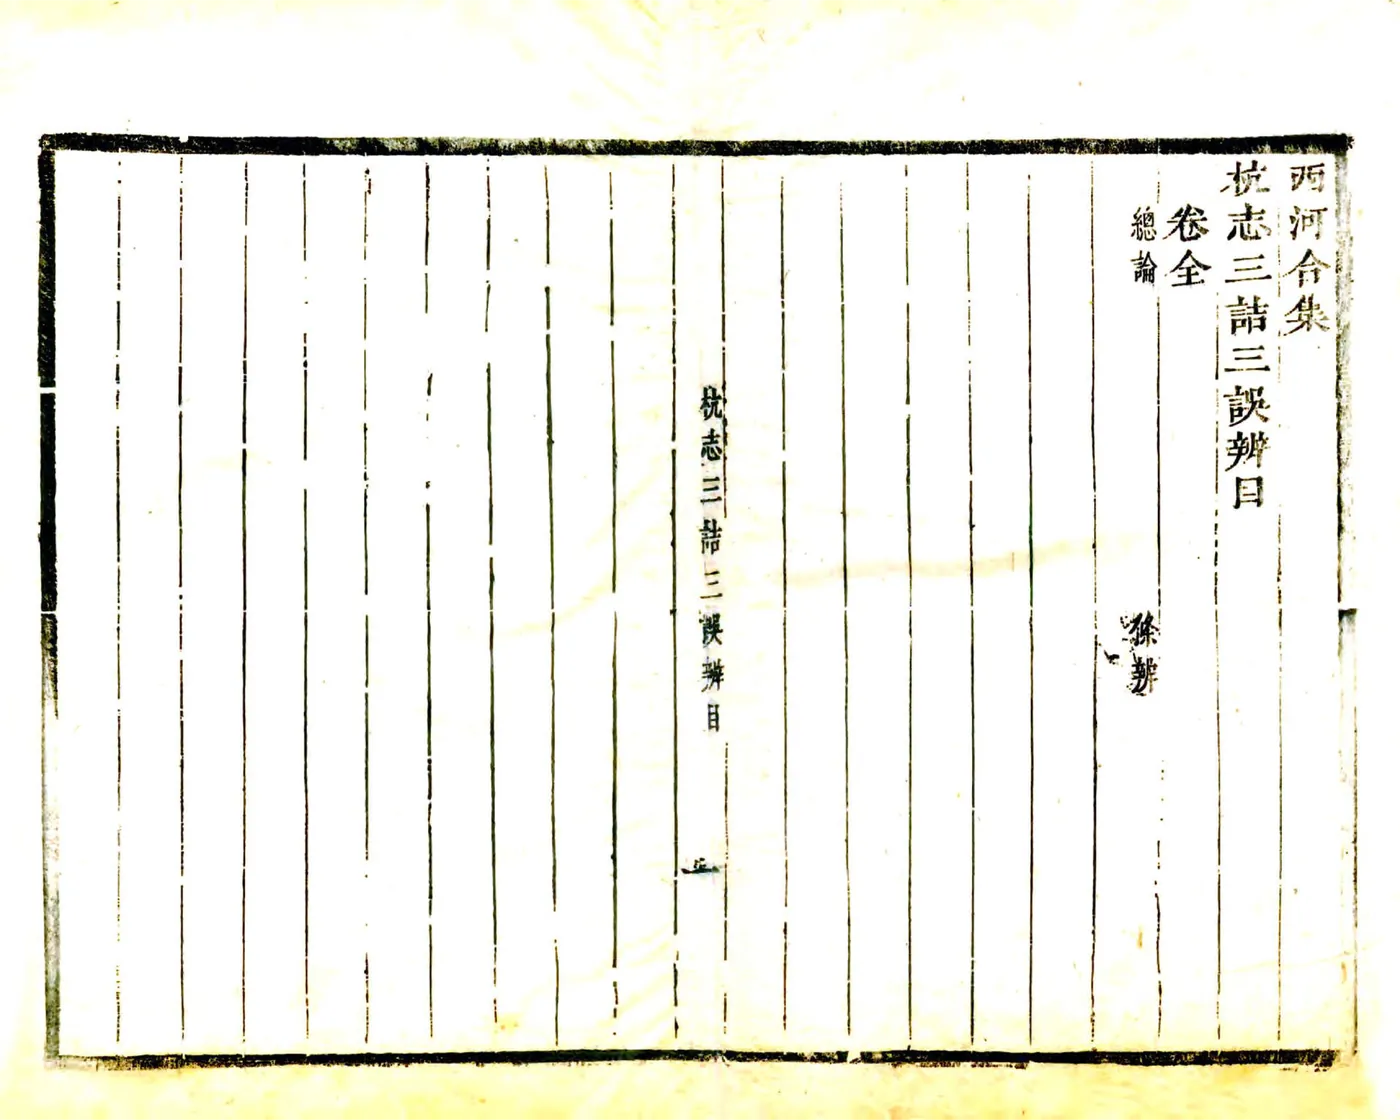 西河合集
杭志三詰三誤辨目
卷全
總論　條辨
杭志三詰三誤辨目